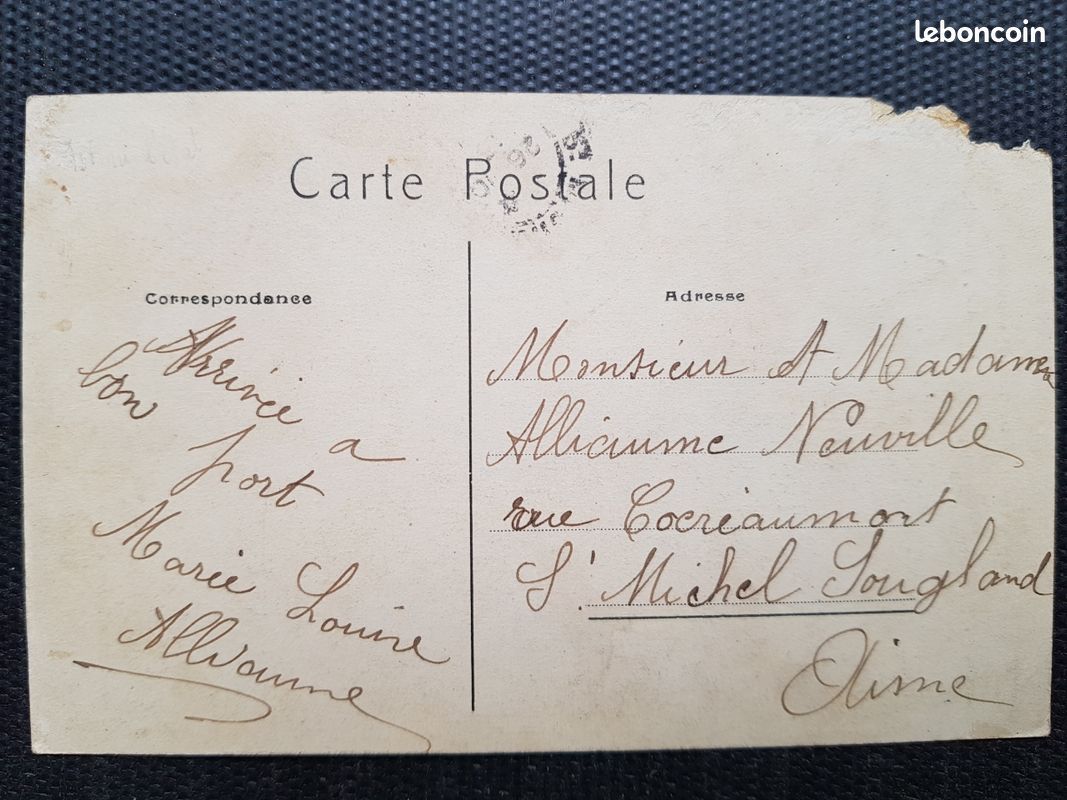 leboncoin
Carte Postale
Correspondance
Arrivée a
bon port
Marie Louise
Alliaume
Adresse
Monsieur et Madame
Alliaume Neuville
rue Cocréaumont
St Michel Sougland
Aisne